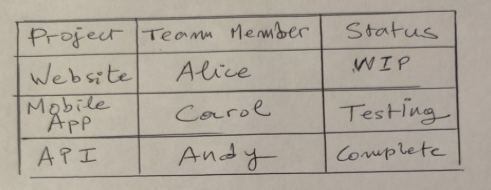 Project Team Member Status
Website Alice WIP
Mobile App Carol Testing
API Andy Complete